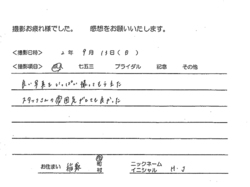 撮影お疲れ様でした。 感想をお願いいたします。
<撮影日時> 2年 9月 13日(日)
<撮影項目> 七五三 ブライダル 記念 その他
良い写真をいっぱい撮ってもらえた
スタッフさんの雰囲気がとても良かった
お住まい 市 町 村 ニックネーム イニシャル M・J